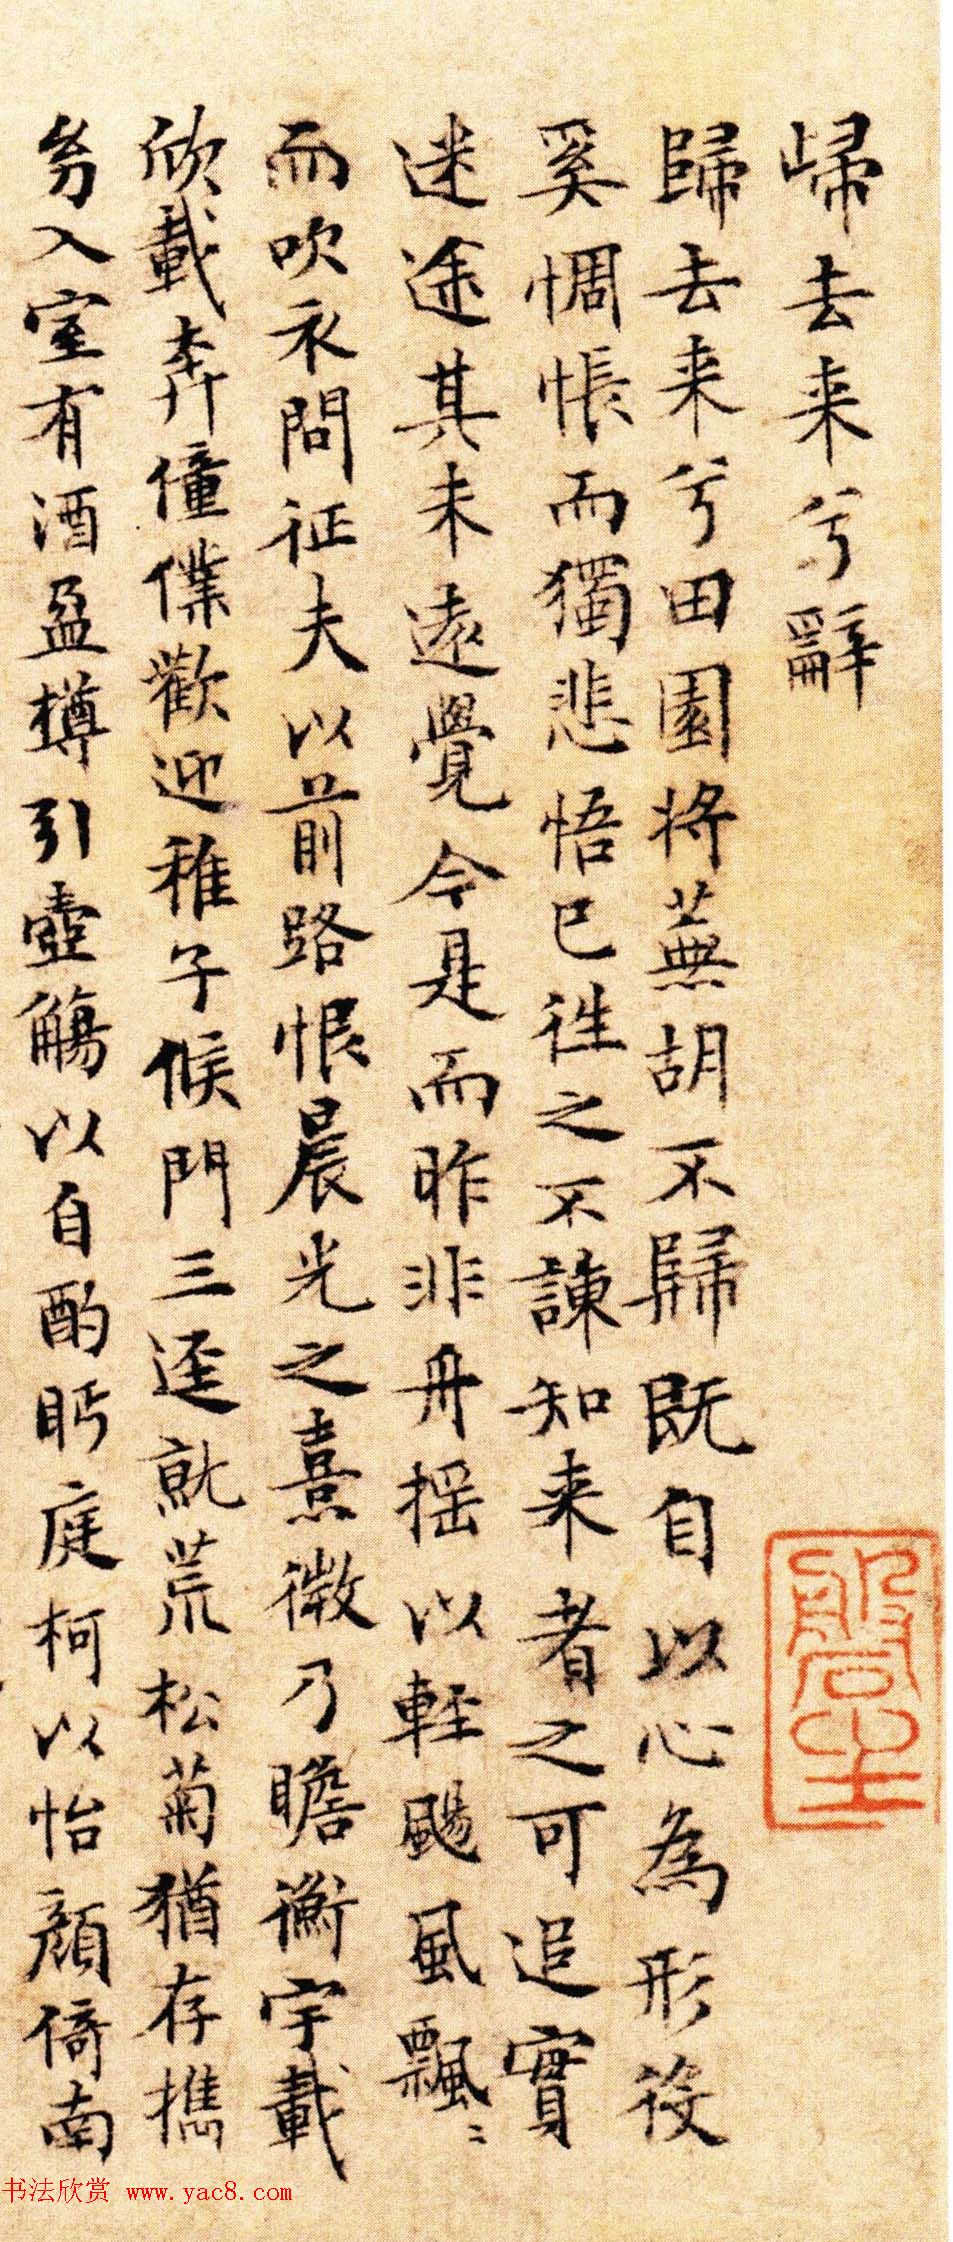 歸去来兮辭
歸去来兮田園将蕪胡不歸既自以心為形役
奚惆悵而獨悲悟已往之不諌知来者之可追實
迷途其未遠覺今是而昨非舟摇以軽颺風飄〻
而吹衣問征夫以前路恨晨光之熹微乃瞻衡宇載
欣載奔僮僕歡迎稚子候門三逕就荒松菊猶存携
㓜入室有酒盈樽引壺觴以自酌眄庭柯以怡顔倚南
书法欣赏 www.yac8.com